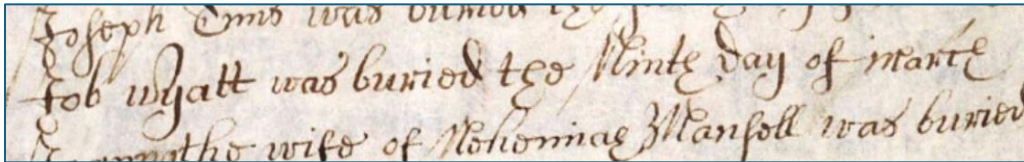 Joseph Tims was buried the
Job wyatt was buried the Ninth day of march
the wife of Nehemiah Mansell was buried